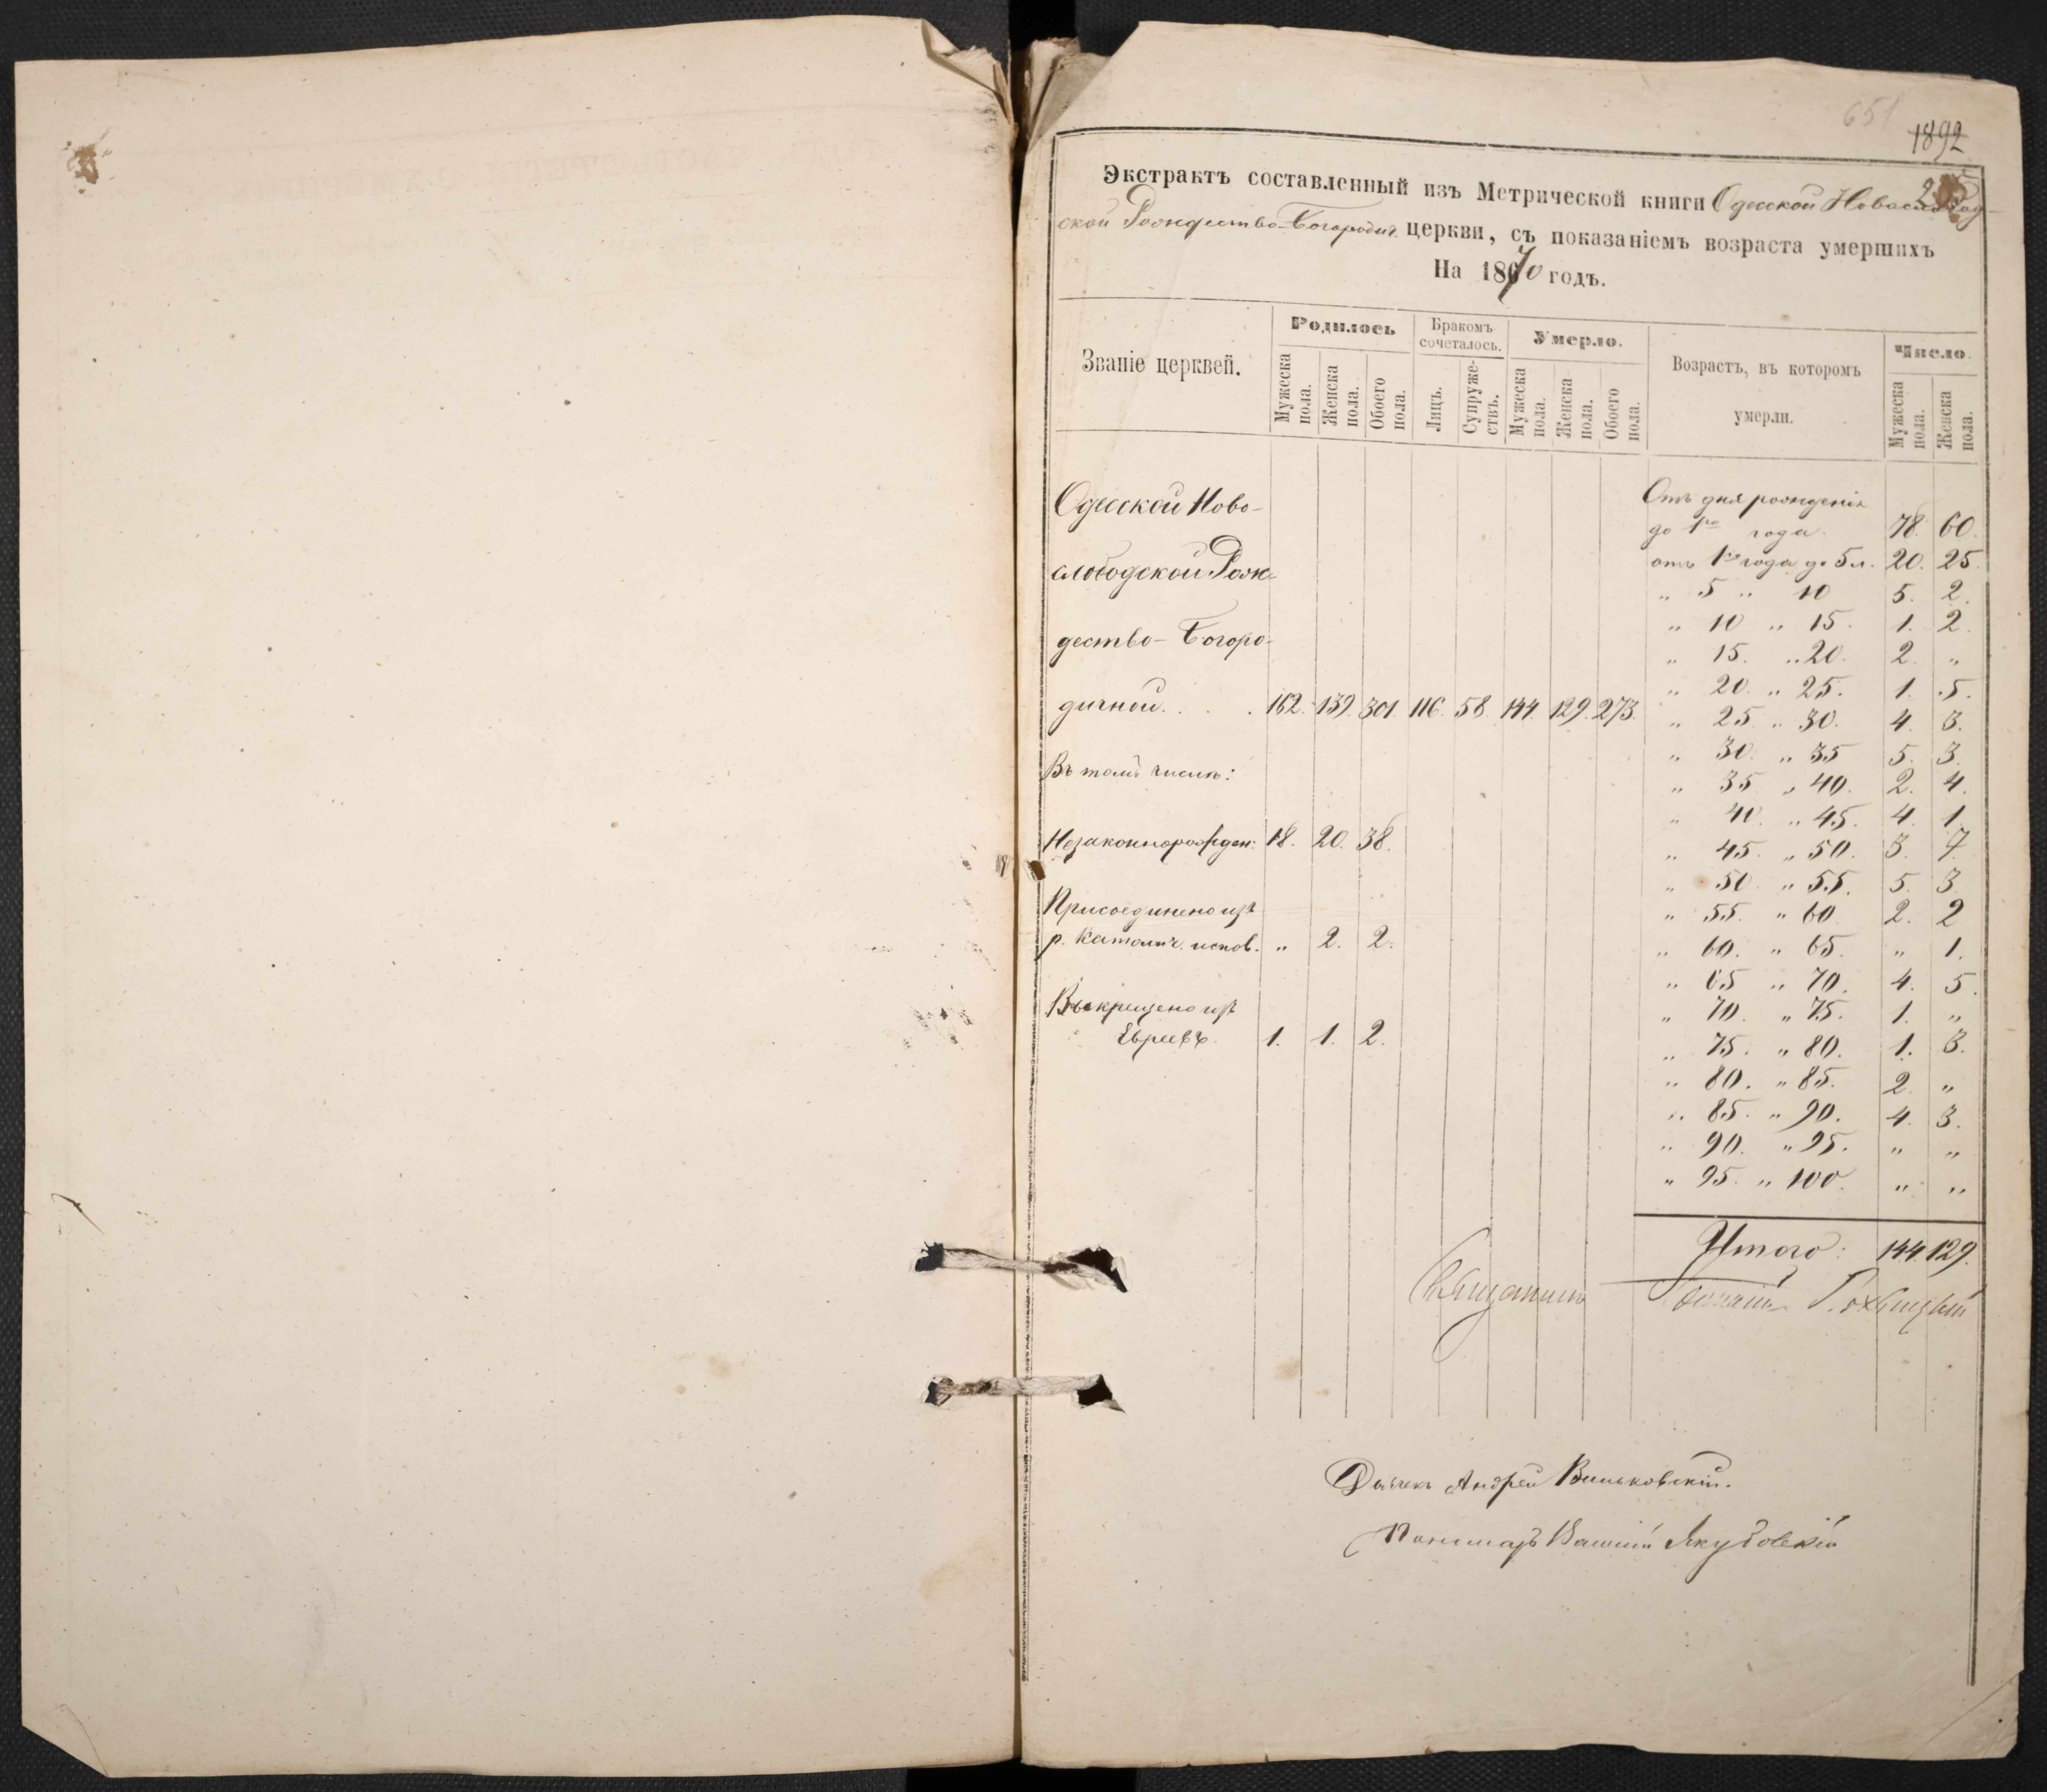 651
1892
Экстрактъ составленный изъ Метрической книги Одесской Новослобод-
ской Рождество-Богородич. церкви, съ показаніемъ возраста умершихъ
На 1870 годъ.
Званіе церквей.
Родилось
Бракомъ сочеталось.
Умерло.
Возрастъ, въ которомъ умерли.
Число.
Мужеска пола.
Женска пола.
Обоего пола.
Лицъ.
Супружествъ.
Мужеска пола.
Женска пола.
Обоего пола.
Мужеска пола.
Женска пола.
Одесской Ново-
слободской Рож-
дество-Богоро-
дичной. . . . 162. 139. 301. 116. 58. 144. 129. 273.
Въ томъ числѣ:
Незаконнорожден: 18. 20. 38.
Присоединено изъ
р. Католич. испов. „ 2. 2.
Выкрещено изъ
Евреевъ. 1. 1. 2.
Отъ дня рожденія
до 1го года. 78. 60.
отъ 1го года до 5 л. 20. 25.
„ 5 „ 10 5. 2.
„ 10 „ 15. 1. 2.
„ 15. „ 20. 2. „
„ 20. „ 25. 1. 5.
„ 25. „ 30. 4. 3.
„ 30. „ 35 5. 3.
„ 35 „ 40. 2. 4.
„ 40. „ 45. 4. 1.
„ 45. „ 50. 3. 7.
„ 50. „ 55. 5. 3.
„ 55. „ 60. 2. 2
„ 60. „ 65. „ 1.
„ 65 „ 70. 4. 5.
„ 70. „ 75. 1. „
„ 75. „ 80. 1. 3.
„ 80. „ 85. 2. „
„ 85. „ 90. 4. 3.
„ 90. „ 95. „ „
„ 95. „ 100. „ „
Итого: 144. 129.
Священникъ
Дьячекъ Андрей Виньковскій.
Пономарь Василій Якубовскій